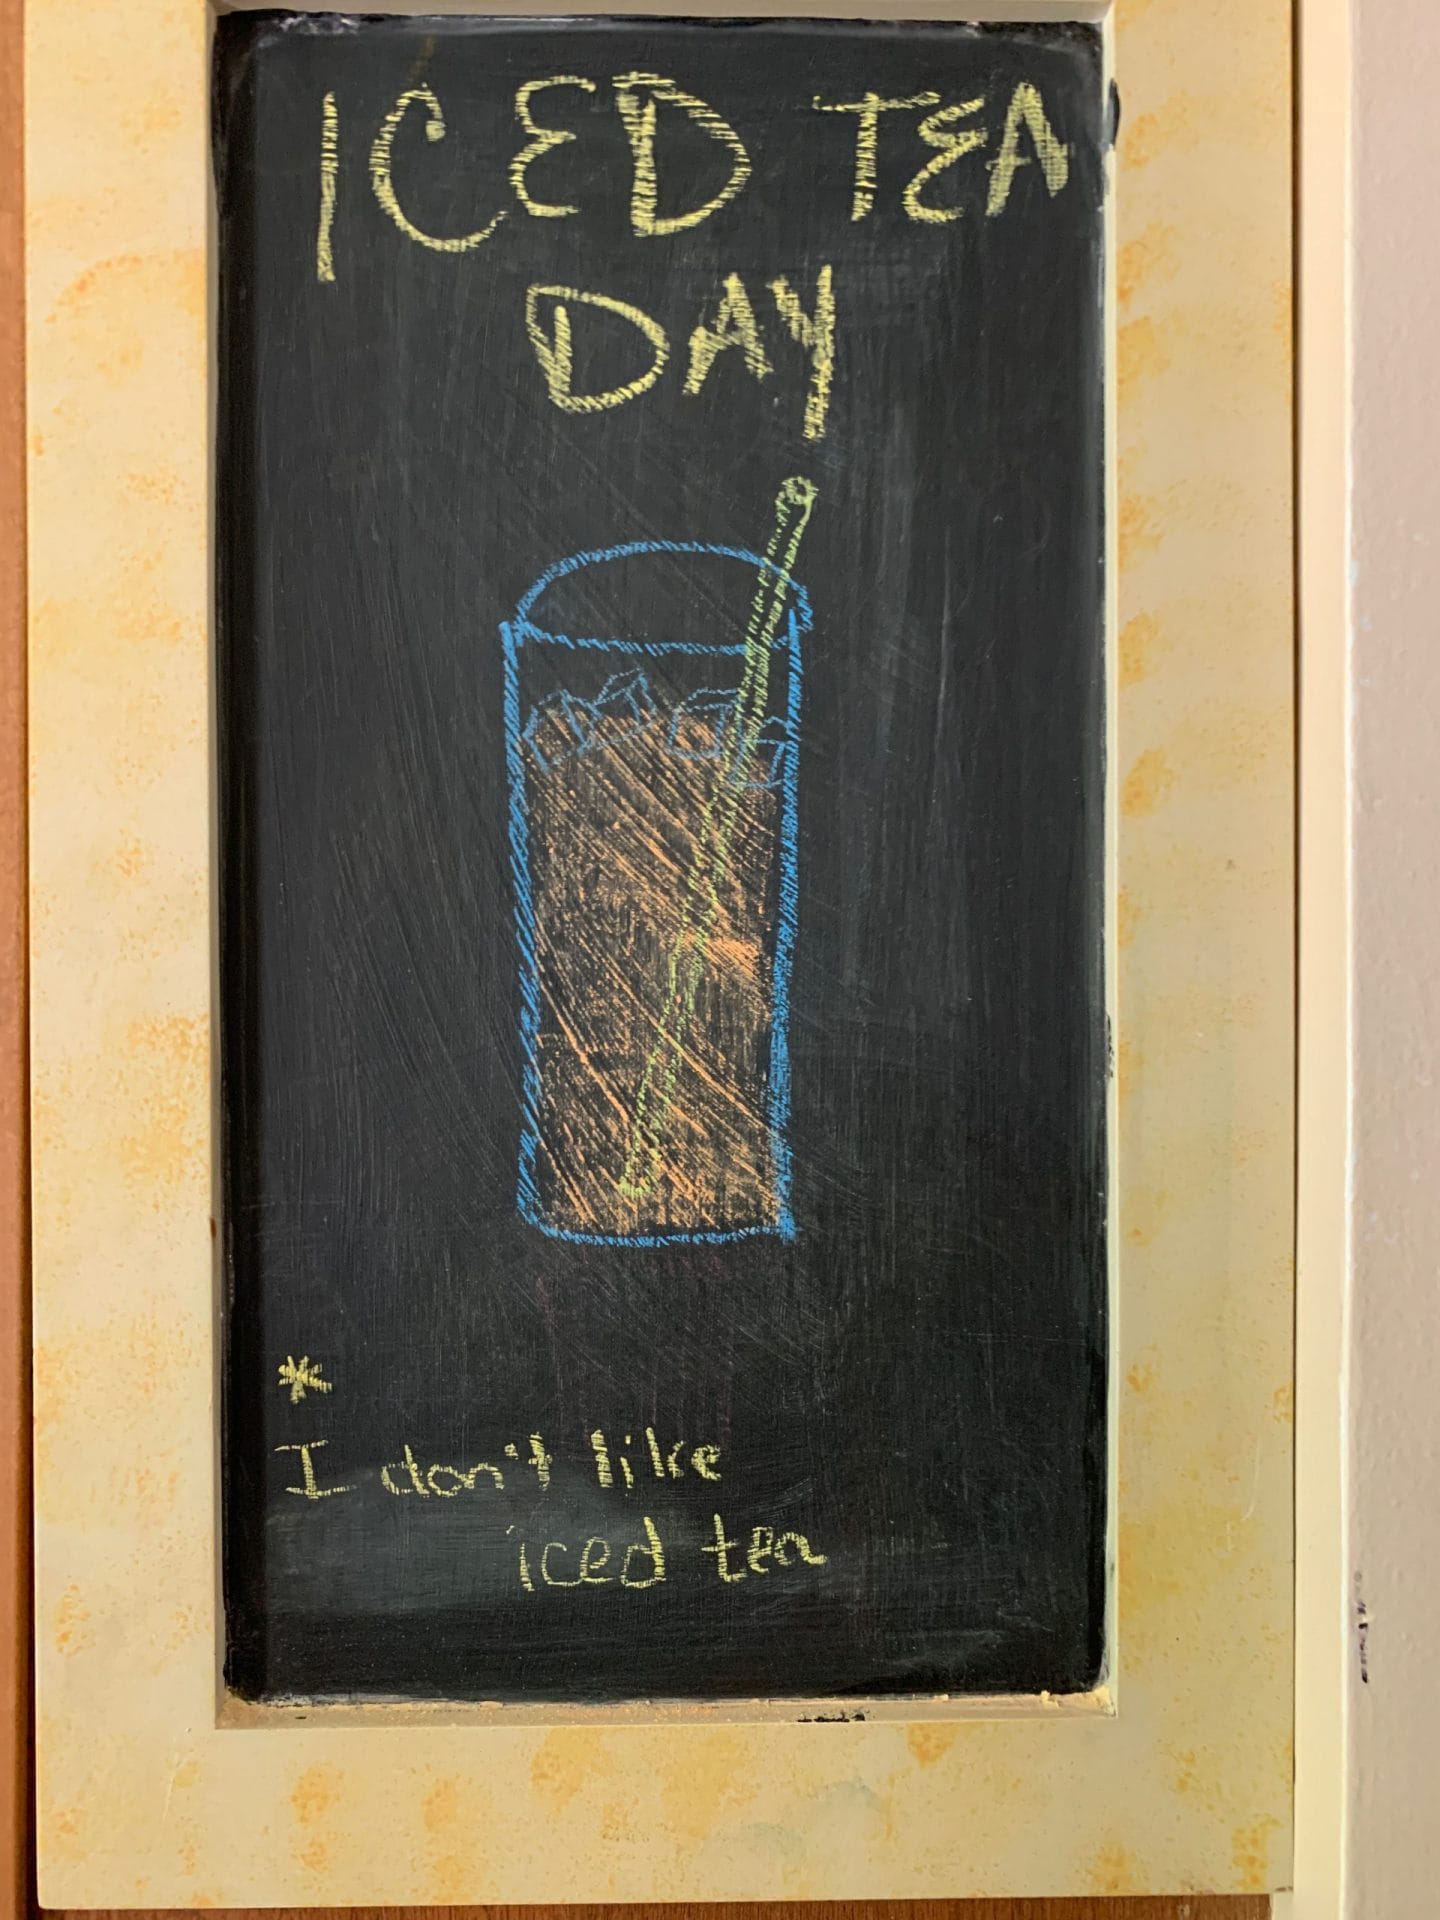 ICED TEA
DAY
*
I don't like
iced tea